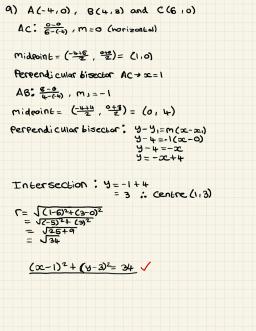 9) A(-4,0), B(4,8) and C(6,0)
AC: (0-0)/(6-(-4)), m=0 (horizontal)
midpoint = ((-4+6)/2, (0+0)/2) = (1,0)
Perpendicular bisector AC → x=1
AB: (8-0)/(4-(-4)), m⊥=-1
midpoint = ((-4+4)/2, (0+8)/2) = (0, 4)
Perpendicular bisector: y-y₁=m(x-x₁)
y-4=-1(x-0)
y-4=-x
y=-x+4
Intersection: y=-1+4
=3 ∴ Centre (1,3)
r= √((1-6)²+(3-0)²)
= √((-5)²+(3)²)
= √(25+9)
= √34
(x-1)²+(y-3)²= 34 ✓